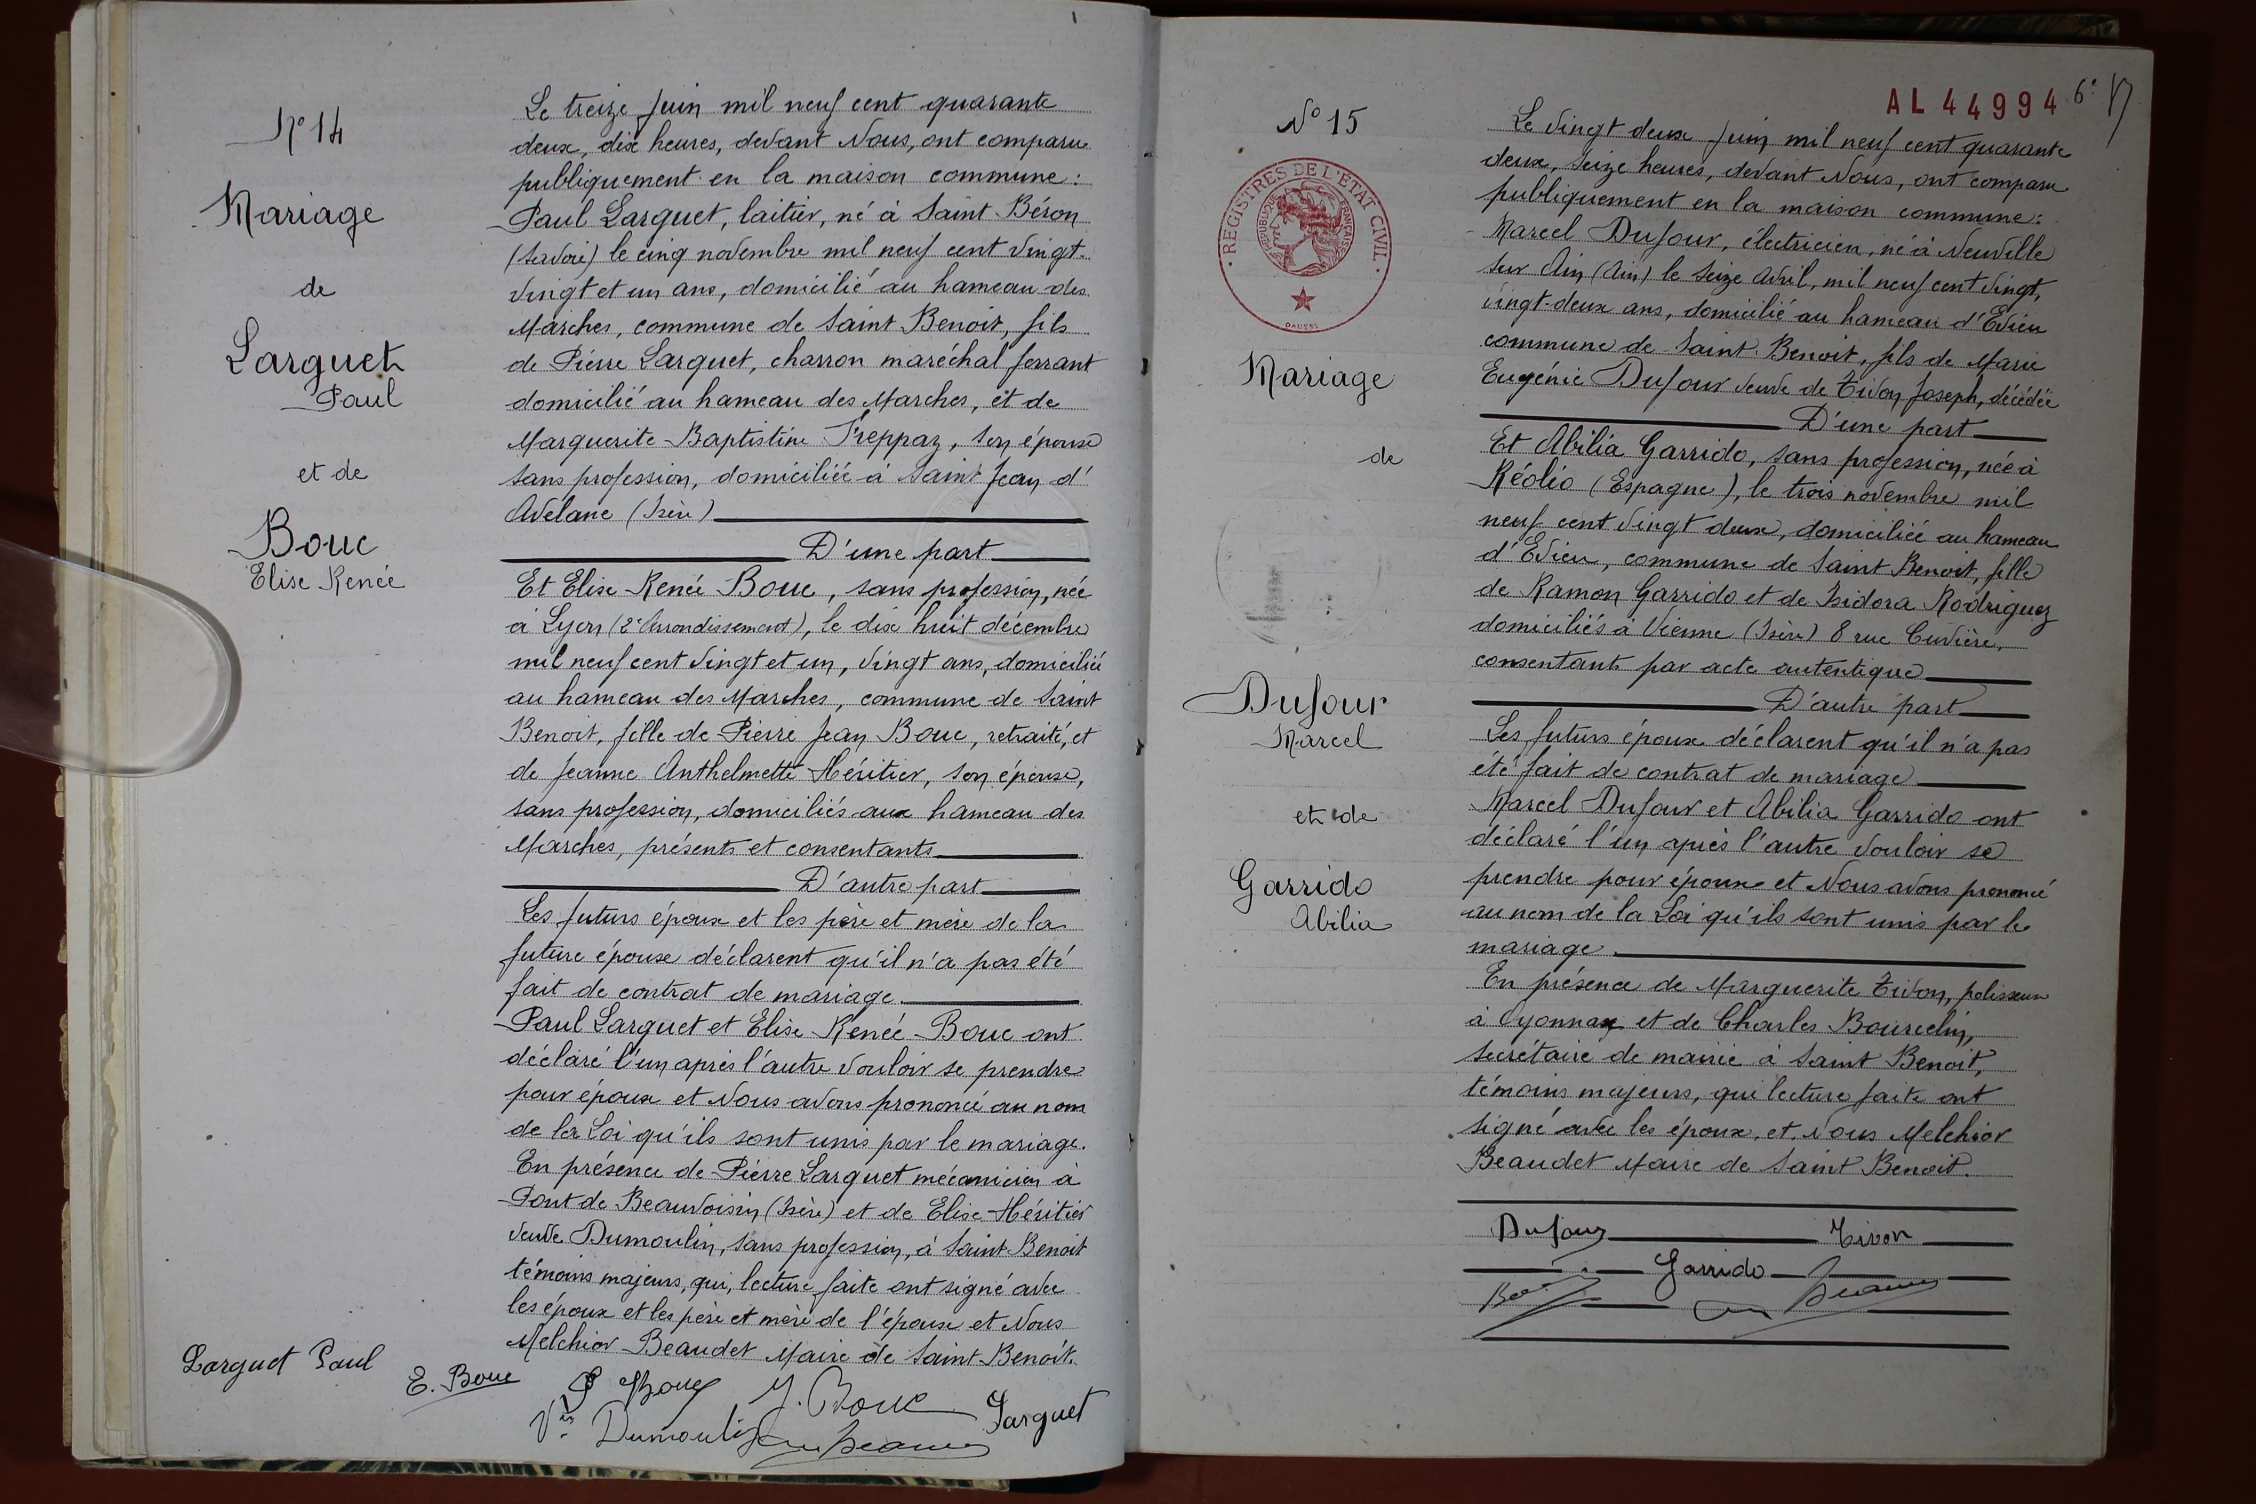 N° 14
Mariage
de
Larguet
Paul
et de
Bouc
Elise Renée
Le treize Juin mil neuf cent quarante
deux, dix heures, devant Nous, ont comparu
publiquement en la maison commune :
Paul Larguet, laitier, né à Saint Béron
(Savoie) le cinq novembre mil neuf cent vingt-
vingt et un ans, domicilié au hameau des
Marches, commune de Saint Benoit, fils
de Pierre Larguet, charron maréchal ferrant
domicilié au hameau des Marches, et de
Marguerite Baptistine Treppaz, son épouse
sans profession, domiciliée à Saint Jean d'
Avelane (Isère)
D'une part
Et Elise Renée Bouc, sans profession, née
à Lyon (2e Arrondissement), le dix huit décembre
mil neuf cent vingt et un, vingt ans, domiciliée
au hameau des Marches, commune de Saint
Benoit, fille de Pierre Jean Bouc, retraité, et
de Jeanne Anthelmette Héritier, son épouse,
sans profession, domiciliés aux hameau des
Marches, présents et consentants
D'autre part
Les futurs époux et les père et mère de la
future épouse déclarent qu'il n'a pas été
fait de contrat de mariage
Paul Larguet et Elise Renée Bouc ont
déclaré l'un après l'autre vouloir se prendre
pour époux et Nous avons prononcé au nom
de la Loi qu'ils sont unis par le mariage.
En présence de Pierre Larguet mécanicien à
Pont de Beauvoisin (Isère) et de Elise Héritier
veuve Dumoulin, sans profession, à Saint Benoit
témoins majeurs, qui, lecture faite ont signé avec
les époux et les père et mère de l'épouse et Nous
Melchior Beaudet Maire de Saint Benoit.
Larguet Paul
E. Bouc
P Bouc
J. Bouc
Larguet
Vve Dumoulin
AL 44994
6e
N° 15
REGISTRES DE L'ETAT CIVIL
REPUBLIQUE FRANÇAISE
DAUSSY
Mariage
de
Dufour
Marcel
et de
Garrido
Abilia
Le vingt deux Juin mil neuf cent quarante
deux, seize heures, devant Nous, ont comparu
publiquement en la maison commune :
Marcel Dufour, électricien, né à Neuville
sur Ain (Ain) le seize avril, mil neuf cent vingt,
vingt-deux ans, domicilié au hameau d'Evieu
commune de Saint Benoit, fils de Marie
Eugénie Dufour veuve de Tivon Joseph, décédée
D'une part
Et Abilia Garrido, sans profession, née à
Réoléo (Espagne), le trois novembre mil
neuf cent vingt deux, domiciliée au hameau
d'Evieu, commune de Saint Benoit, fille
de Ramon Garrido et de Isidora Rodriguez
domiciliés à Vienne (Isère) 8 rue Cuvière,
consentants par acte autentique
D'autre part
Les futurs époux déclarent qu'il n'a pas
été fait de contrat de mariage
Marcel Dufour et Abilia Garrido ont
déclaré l'un après l'autre vouloir se
prendre pour époux et Nous avons prononcé
au nom de la Loi qu'ils sont unis par le
mariage
En présence de Marguerite Tivon, polisseuse
à Oyonnax et de Charles Bourcelin,
secrétaire de mairie à Saint Benoit,
témoins majeurs, qui lecture faite ont
signé avec les époux, et Nous Melchior
Beaudet Maire de Saint Benoit.
Dufour
Tivon
Garrido